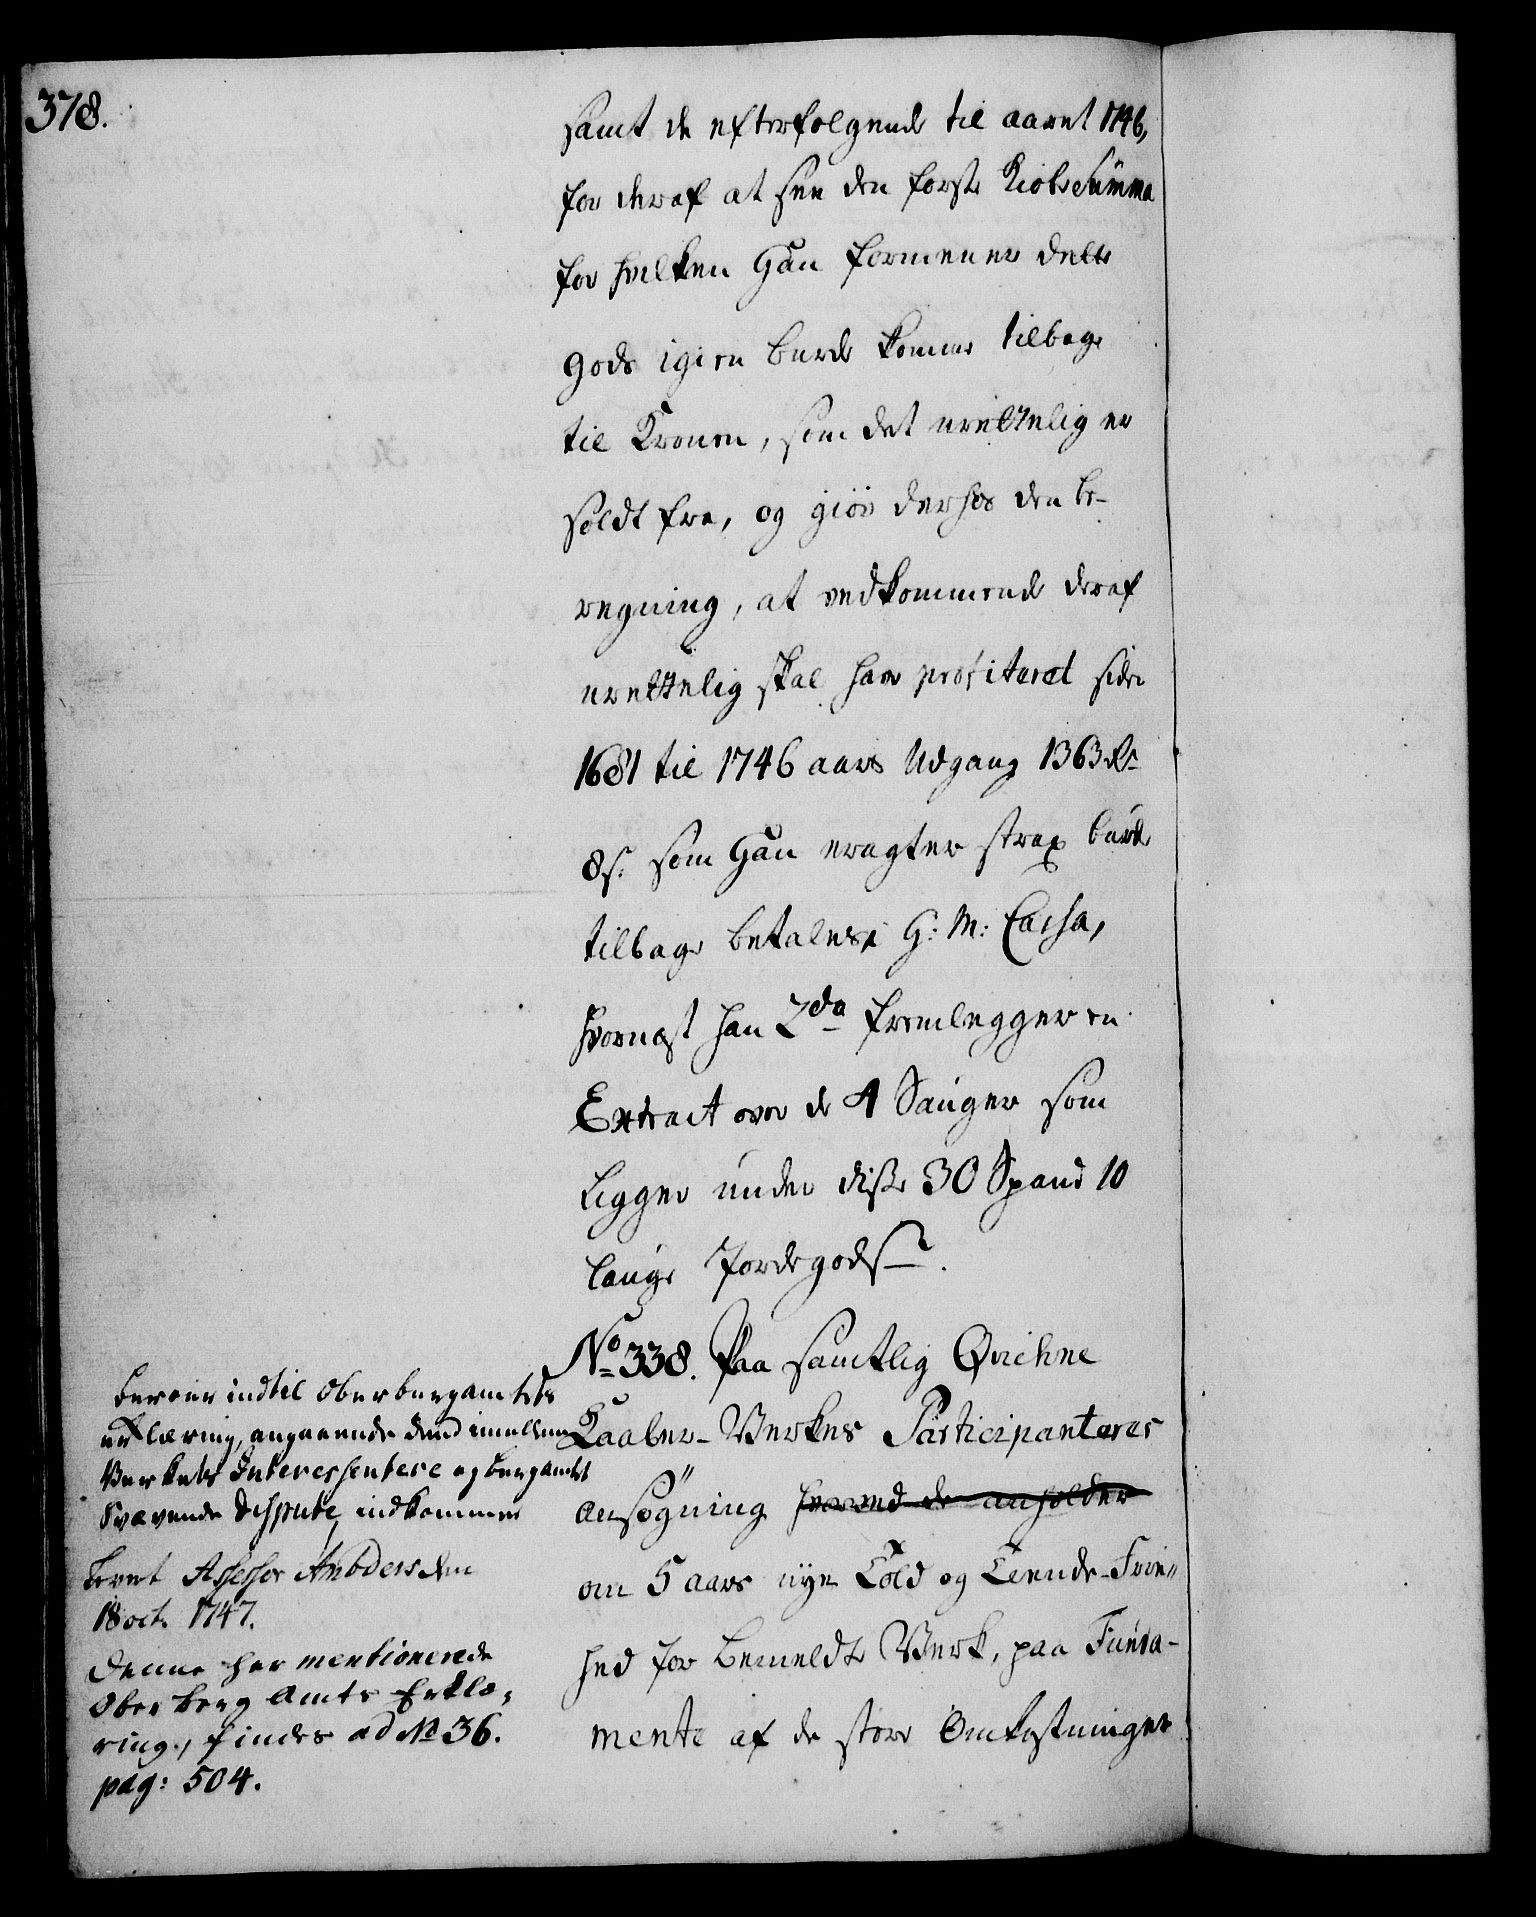 378.
samt de efterfølgende til aaret 1746,
for deraf at see den første Kiøbs Summa
for hvilken Han formener dette
Gods igien burde komme tilbage
til Cronen, som det urettelig er
soldt fra, og giør derhos den be-
regning, at vedkommende deraf
urettelig skal have profiteret siden
1681 til 1746 aars Udgang 1363 Rd
8 s. som Han eragter strax burde
tilbage betales i G: M: Cassa,
hvornæst han 2do fremlegger en
Extract over de 4 Sauger som
ligger under disse 30 Spand 10
lauge Jordegods.
No 338. Paa samtlig Qvichne
Kaaber-Verkes Participanteres
ansøgning hvorved de anholder
om 5 aars nye Told og Tiende-Frie"
hed for bemeldte Verk, paa Funda-
mente af de store Omkostninger
beroer indtil Oberbergamtets
erklæring, angaaende dend imellem
Verkets Interessentere og bergamtet
svævende dispute, indkommer
levert Assessor Anbders den
18 oct. 1747.
Denne her mentionerede
Ober berg Amts Erklæ-
ring, findes ad No 36.
pag: 504.